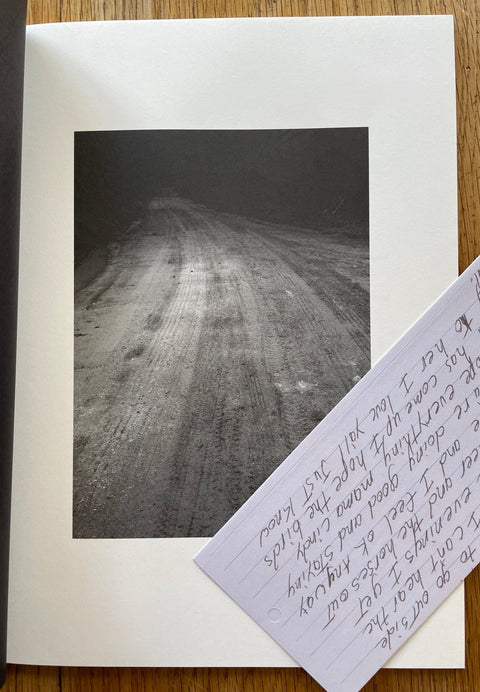 to go out side
I can't hear the
evenings I yet
and the horses out
and I feel ok Any way
you're doing good and staying
hope everything mama cindy
has come up I hope the birds
to her I love ya'll Just Know